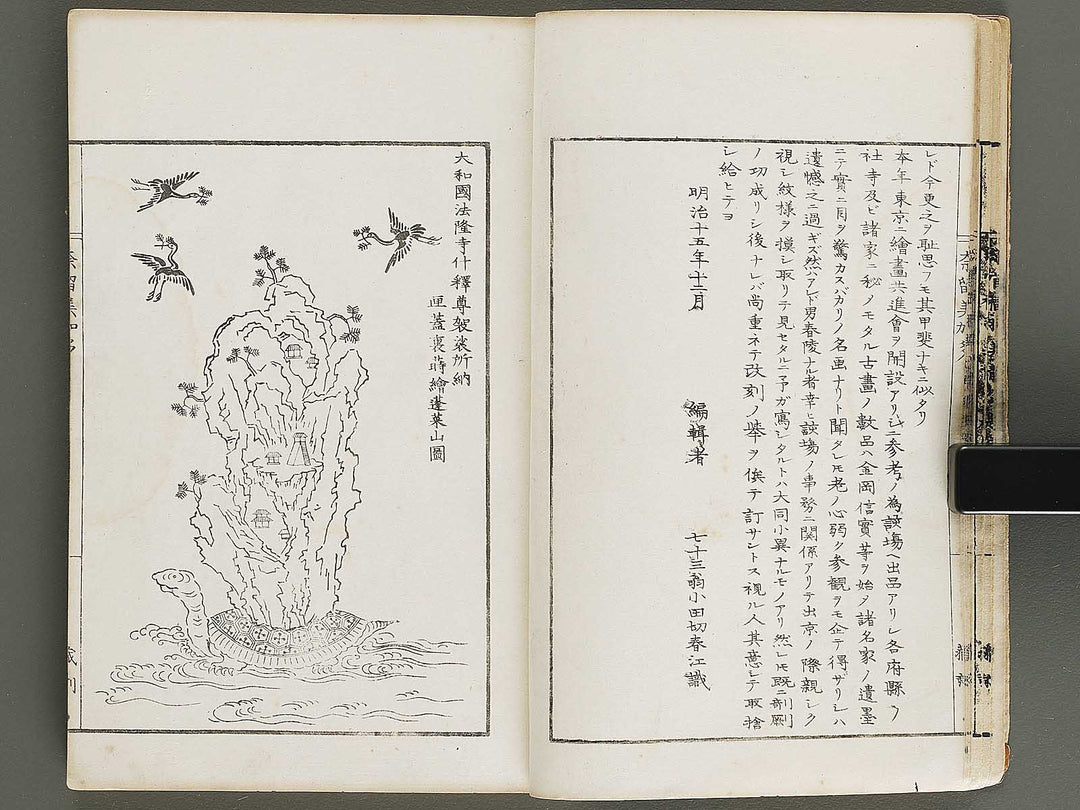 レド今更之ヲ耻思フモ其甲斐ナキニ似タリ
本年東京ニ繪畫共進會ヲ開設アリシニ参考ノ為該塲ヘ出品アリシ各府縣ノ
社寺及ビ諸家ニ秘ノモタル古畫ノ數品ハ金岡信實等ヲ始メ諸名家ノ遺墨
ニテ實ニ目ヲ驚カスバカリノ名画ナリト聞タレモ老ノ心弱ク参観ヲモ企テ得ザリシハ
遺憾之ニ過ギズ然ルニ男春陵ナル者幸ニ該塲ノ事務ニ關係アリテ出京ノ際親シク
視シ紋様ヲ摸シ取リテ見セタルニ予ガ寫シタルトハ大同小異ナルモノアリ然レモ既ニ剞劂
ノ功成リシ後ナレバ尚重ネテ改刻ノ舉ヲ俟テ訂サントス視ル人其意シテ取捨
シ給ヒテヨ
明治十五年十二月
編輯者 七十三翁小田切春江識
大和國法隆寺什釋尊袈裟所納
匣蓋裏蒔繪蓬莱山圖